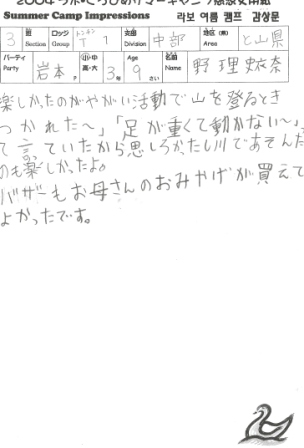 2004 ラボ・てらぴあサマーキャンプ感想文用紙
Summer Camp Impressions 라보 여름 캠프 감상문
3 班 Section Group ロッジ T1 支部 Division 中部 地区(県) Area と山県
パーティ Party 岩本 P 小・中・高・大 3年 Age 9さい 名前 Name 野 理衣奈
楽しかったのがやがい活動で山を登るとき
つかれた～」「足が重くて動かない～」
て言ていたから思しろかたし川であそんだ
のも楽しかったよ。
バザーもお母さんのおみやげが買えて
よかったです。